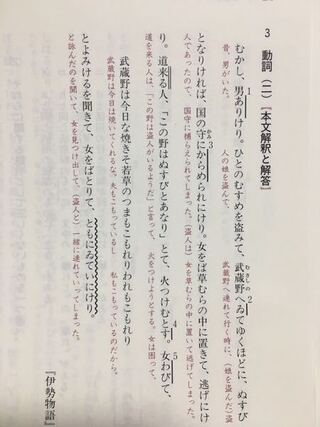 3 動詞(二)【本文解釈と解答】
むかし、男1ありけり。ひとのむすめを盗みて、武蔵野(むさしの)へ2ゐてゆくほどに、ぬすび
昔、男がいた。 人の娘を盗んで、 武蔵野へ連れて行く時に、(娘を盗んだ)盗
となりければ、国の守(かみ)に3からめられにけり。女をば草むらの中に置きて、逃げにけ
人であったので、国守に捕らえられてしまった。(盗人は)女を草むらの中に置いて逃げてしまった。
り。道来る人、「この野はぬすびとあなり」とて、火つけむと4す。女5わびて、
道を来る人は、「この野は盗人がいるようだ」と言って、火をつけようとする。女は困って、
武蔵野は今日な焼きそ若草のつまもこもれりわれもこもれり
武蔵野は今日は焼いてくれるな。夫もこもっているし 私もこもっているのだから。
とよみけるを聞きて、女をばとりて、ともにゐていにけり。
と詠んだのを聞いて、女を見つけ出して、(盗人と)一緒に連れていってしまった。
『伊勢物語』